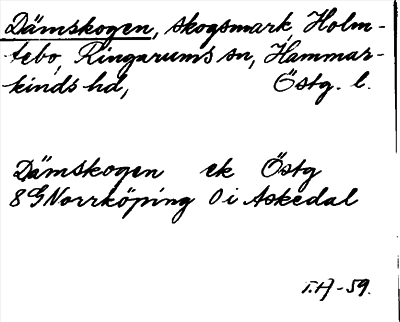 Dämskogen, skogsmark, Holm-
tebo, Ringarums sn, Hammar-
kinds hd, Östg. l.
Dämskogen ek Östg
8G Norrköping 0i Askedal
T.H-59.